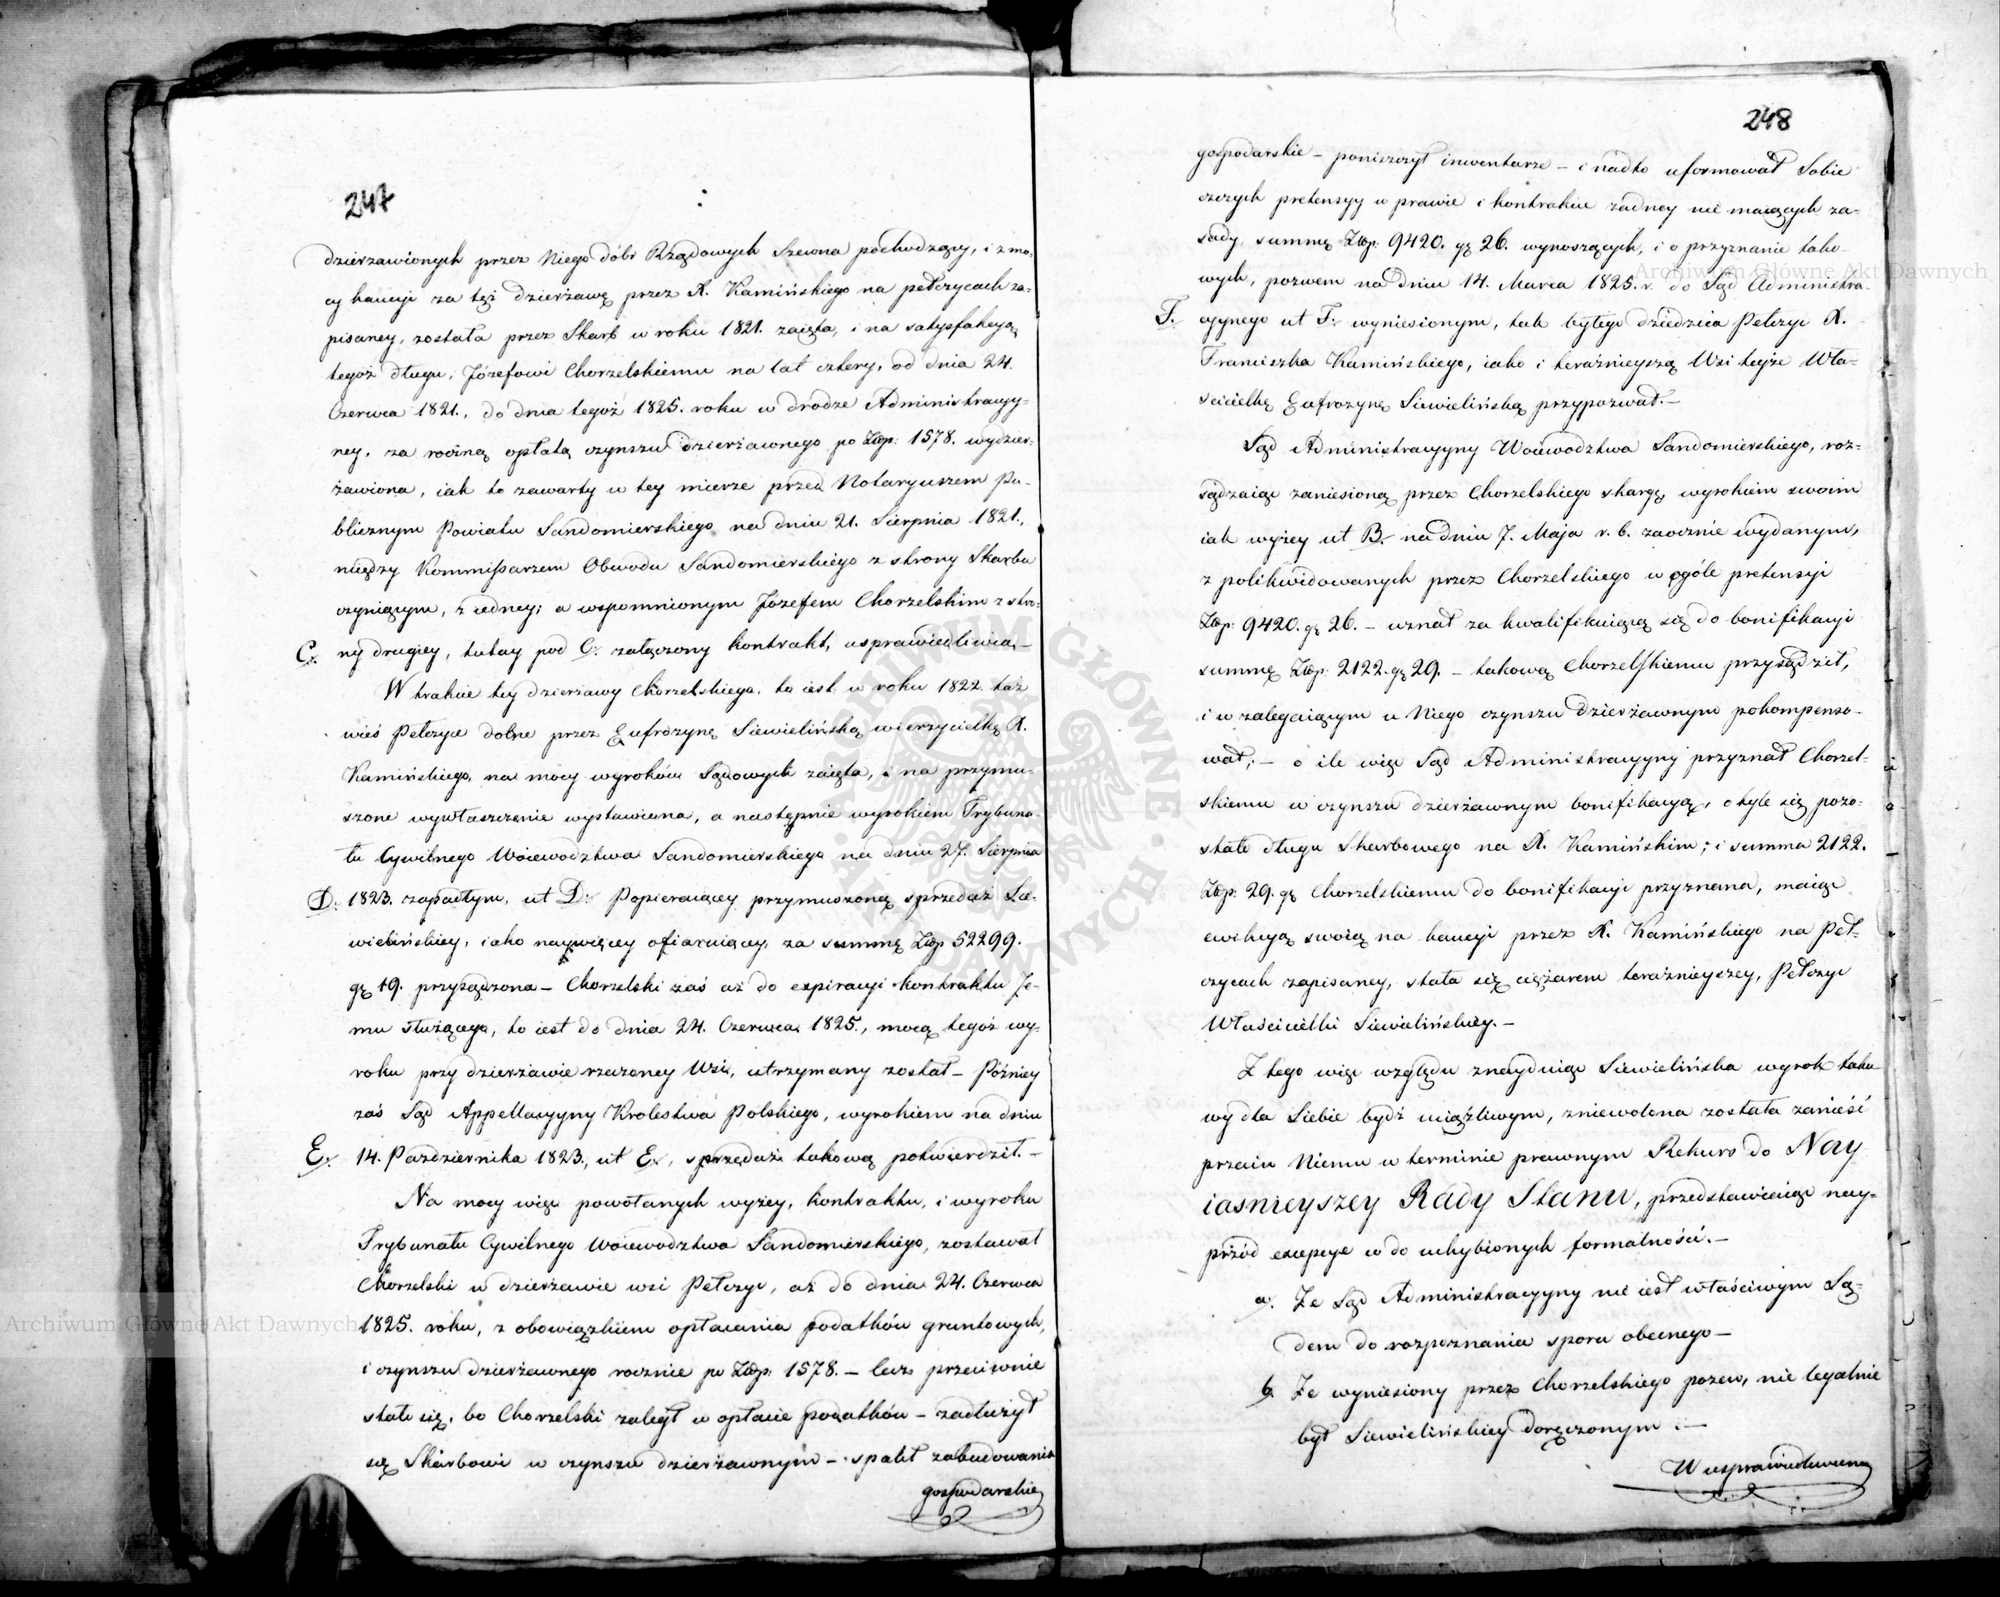 247
dzierzawionych przez Niego dóbr Rządowych Szewna pochodzący, i z mo-
cy kaucyi za tęż dzierżawę przez X. Kamińskiego na pełczycach za-
pisaney, została przez Skarb w roku 1821. zaięta, i na satysfakcyą
tegoż długu, Józefowi Chorzelskiemu na lat cztery, od dnia 24.
Czerwca 1821., do dnia tegoż 1825. roku w drodze Administracyy-
ney, za roczną opłatą czynszu dzierżawnego po Złp: 1578. wydzier-
żawiona, iak to zawarty w tey mierze przed Notaryuszem Pu-
blicznym Powiatu Sandomierskiego na dniu 21. Sierpnia 1821.,
między Kommissarzem Obwodu Sandomierskiego z strony Skarbu
czyniącym, z iedney; a wspomnionym Józefem Chorzelskim z stro-
C. ny drugiey, tutay pod C. załączony kontrakt, usprawiedliwia,-
W trakcie tey dzierżawy Chorzelskiego, to iest w roku 1822. taż
wieś Pełczyce dolne przez Eufrozynę Siewielińską wierzycielkę X.
Kamińskiego, na mocy wyroków Sądowych zaięta, i na przymu-
szone wywłaszczenie wystawiona, a następnie wyrokiem Trybuna-
łu Cywilnego Woiewodztwa Sandomierskiego na dniu 27. Sierpnia
D. 1823. zapadłym, ut D. Popieraiącey przymuszoną sprzedaż Sie-
wielińskiey, iako naywięcey ofiaruiącey, za summę Złp 52299.
gę 19. przysądzona - Chorzelski zaś aż do expiracyi kontraktu Je-
mu służącego, to iest do dnia 24. Czerwca 1825., mocą tegoż wy-
roku przy dzierżawie rzeczoney Wsi, utrzymany został - Późniey
zaś Sąd Appellacyyny Krolestwa Polskiego, wyrokiem na dniu
E. 14. Pazdziernika 1823, ut E., sprzedaż takową potwierdził. -
Na mocy więc powołanych wyżey, kontraktu, i wyroku
Trybunału Cywilnego Woiewodztwa Sandomierskiego, zostawał
Chorzelski w dzierżawie wsi Pełczyc, aż do dnia 24. Czerwca
1825. roku, z obowiązkiem opłacania podatków gruntowych,
i czynszu dzierżawnego rocznie po Złp: 1578. - lecz przeciwnie
stało się, bo Chorzelski zaległ w opłacie podatków - zadłużył
się Skarbowi w czynszu dzierżawnym - spalił zabudowania
gospodarskie
248
gospodarskie - poniszczył inwentarze - i nadto uformował Sobie
szczych pretensyy w prawie i kontrakcie żadney nie maiących za-
sady, summę Złp: 9420. gę 26. wynoszących, i o przyznanie tako-
wych, pozwem na dniu 14. Marca 1825. r. do Sąd Administra-
F. cyynego ut F. wyniesionym, tak byłego dziedzica Pełczyc X.
Franciszka Kamińskiego, iako i teraźnieyszą Wsi teyże Wła-
ścicielkę Eufrozynę Siewielińską przypozwał.-
Sąd Administracyyny Woiewodztwa Sandomierskiego, roz-
sądzaiąc zaniesioną przez Chorzelskiego skargę, wyrokiem swoim
iak wyżey ut B. na dniu 7. Maja r. b. zaocznie wydanym,
z polikwidowanych przez Chorzelskiego w ogóle pretensyi
Złp: 9420. gę 26. - uznał za kwalifikuiącą się do bonifikacyi
summę Złp: 2122. gę 29. - takową Chorzelskiemu przysądził,
i w zalegaiącym u Niego czynszu dzierżawnym pokompenso-
wał; - o ile więc Sąd Administracyyny przyznał Chorzel-
skiemu w czynszu dzierżawnym bonifikacyą, o tyle się pozo-
stało długu Skarbowego na X. Kamińskim; i summa 2122.
Złp: 29. gę Chorzelskiemu do bonifikacyi przyznana, maiąc
ewikcyą swoią na kaucyi przez X. Kamińskiego na Peł-
czycach zapisaney, stała się ciężarem teraźnieyszey, Pełczyc
Właścicielki Siewielińskiey.-
Z tego więc względu znayduiąc Siewielińska wyrok tako-
wy dla Siebie bydź uciążliwym, zniewolona została zanieść
przeciw Niemu w terminie prawnym Rekurs do Nay
iaśnieyszey Rady Stanu, przedstawiaiąc nay-
przód excepcye co do uchybionych formalności.-
a. Że Sąd Administracyyny nie iest właściwym Są-
dem do rozpoznania sporu obecnego -
b. Że wyniesiony przez Chorzelskiego pozew, nie legalnie
był Siewielińskiey doręczonym. -
W usprawiedliwieniu
Archiwum Główne Akt Dawnych
Archiwum Główne Akt Dawnych
ARCHIWUM GŁÓWNE AKT DAWNYCH